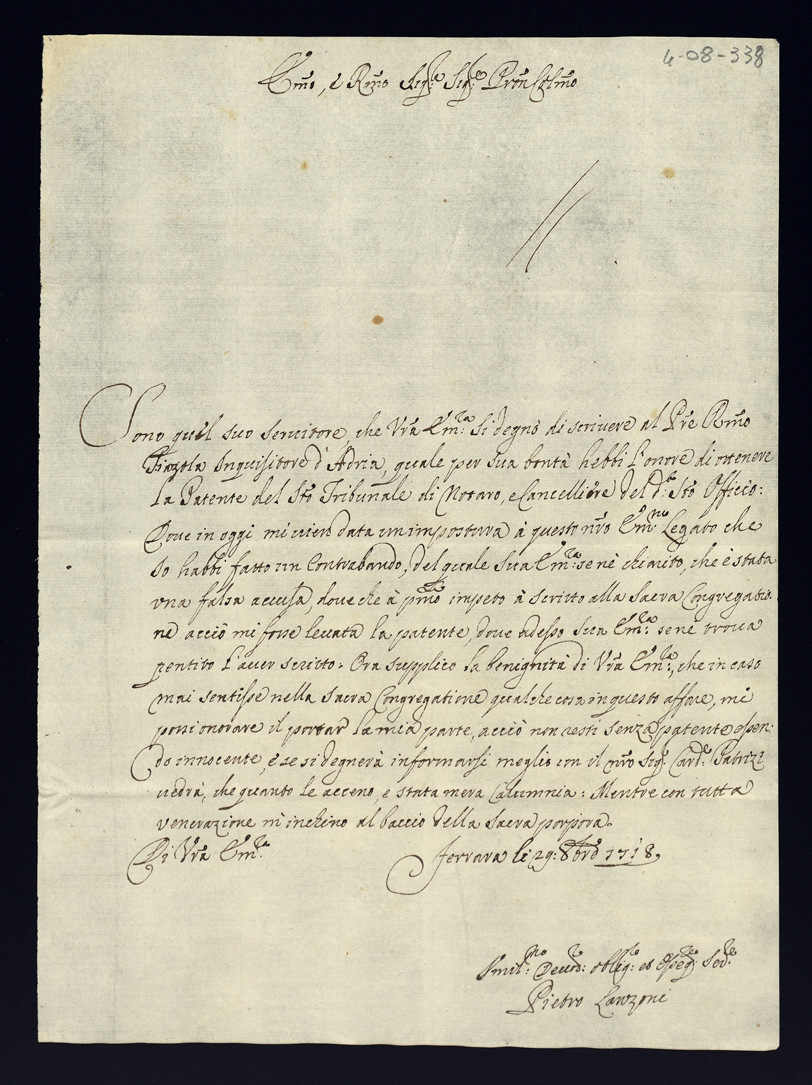 4-08-338
Em̃o, è Rm̃o Sig.re Sig.re Prõn Colm̃o
Sono quel suo seruitore, che Vr̃a Em.za si degnò di scriuere al Pr̃e Rm̃o
Inquisitore d'Adria, quale per sua bontà hebbi l'onore di ottenere
la Patente del Sto Tribunale di Notaro, e Cancelliere del d.to Sto Officio:
Doue in oggi mi vien data un impostura à questo nr̃o Em.mo Legato che
Io habbi fatto un Contrabando, del quale sua Em.za se nè chiarito, che è stata
vna falsa accusa, doue che à pm̃o impeto à scritto alla Sacra Congregatio:
ne acciò mi fosse leuata la patente, doue adesso sua Em.za se ne troua
pentito l'auer scritto. Ora supplico la benignità di Vr̃a Em.za, che in caso
mai sentisse nella Sacra Congregatione qualche cosa in questo affare, mi
possi onorare il portar la mia parte, acciò non resti senza patente essen:
do innocente, e se si degnerà informarsi meglio con il nr̃o Sig.r Card.e Patrizi
uedrà, che quanto le acceno, e stata mera Calumnia: Mentre con tutta
venerazione m'inchino al baccio della Sacra porpora.
Di Vr̃a Em.za
Ferrara li 29: 8bre 1718,
Vmil.mo Deuot: oblig: et osseq: Ser.re
Pietro Lanzoni